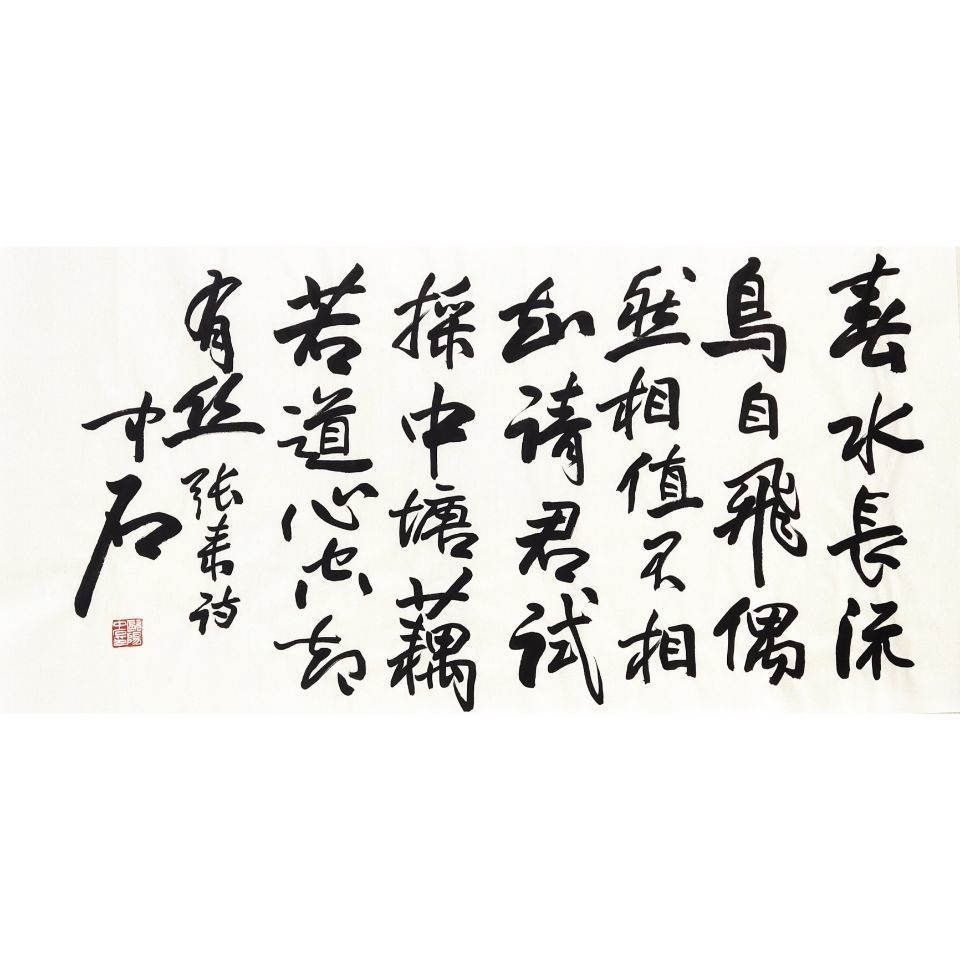 春水長流
鳥自飛偶
然相值不相
知請君試
採中塘藕
若道心空却
有丝 張耒詩
中石